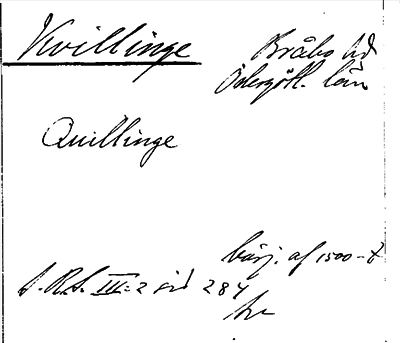 Kvillinge Bråbo hd
Östergötl. län
Quillinge
börj. af 1500-t
S.R.S. III:2 sid 284